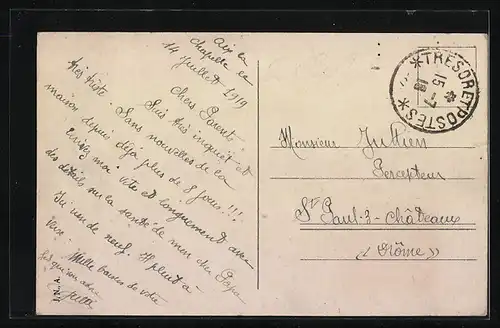 Aix la
Chapelle le
14 Juillet 1919
Chers Parents
Suis très inquiet et
très triste. Sans nouvelles de la
maison depuis déjà plus de 8 jours !!!
Ecrivez moi vite et longuement avec
des détails sur la santé de mon cher Papa
Ici rien de neuf. Il pleut à
verse. Mille baisers de votre
fils qui vous
I.N.A.
TRESOR ET POSTES
15 -7
Monsieur Jullien
Percepteur
St Paul-3-Châteaux
(Drôme)